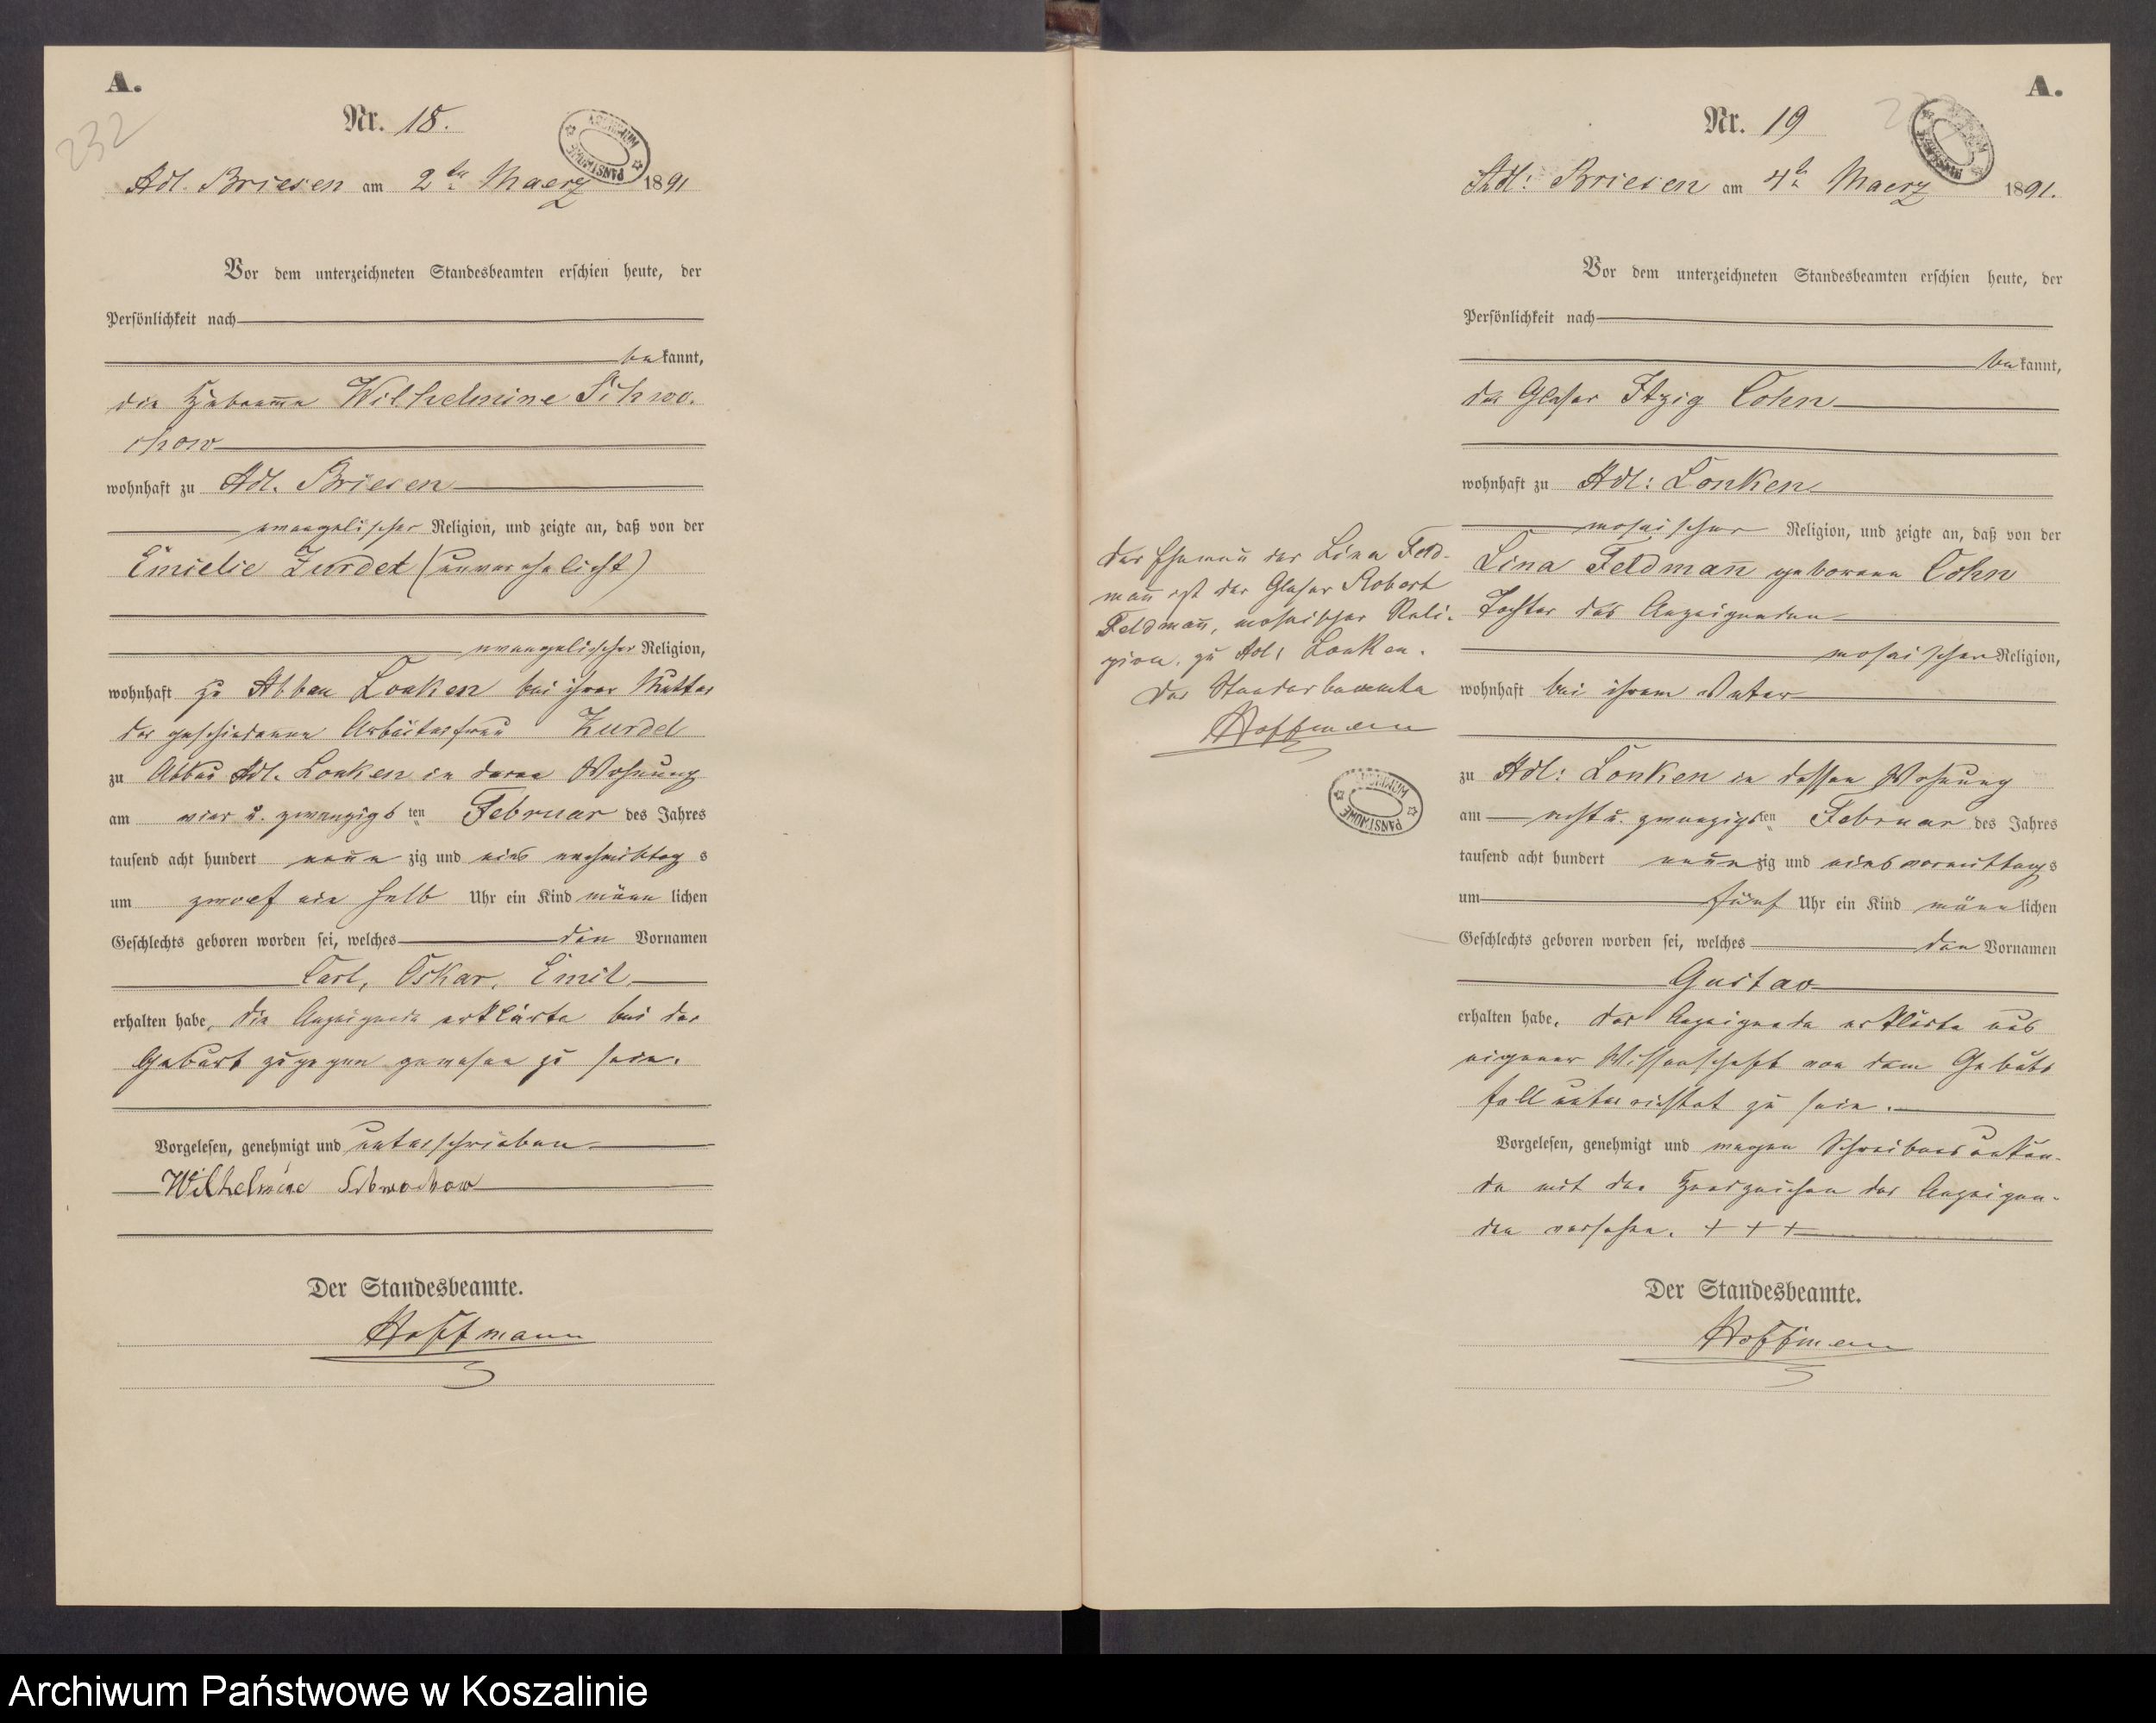 A.
232
Nr. 18.
Adl. Briesen am 2ten Maerz 1891
Vor dem unterzeichneten Standesbeamten erschien heute, der
Persönlichkeit nach
bekannt,
die Hebamme Wilhelmine Schwo-
chow
wohnhaft zu Adl. Briesen
evangelischer Religion, und zeigte an, daß von der
Emielie Zurdel (unverehelicht)
evangelischer Religion,
wohnhaft zu Abbau Lonken bei ihrer Mutter
der geschiedenen Arbeiterfrau Zurdel
zu Abbau Adl. Lonken in deren Wohnung
am vier u. zwanzigsten Februar des Jahres
tausend acht hundert neunzig und eins nachmittags
um zwoelf ein halb Uhr ein Kind männlichen
Geschlechts geboren worden sei, welches den Vornamen
Carl, Oskar, Emil,
erhalten habe, die Anzeigende erklärte bei der
Geburt zugegen gewesen zu sein.
Vorgelesen, genehmigt und unterschrieben
Wilhelmine Schwochow
Der Standesbeamte.
Hoffmann
A.
Nr. 19
Adl: Briesen am 4ten Maerz 1891.
Vor dem unterzeichneten Standesbeamten erschien heute, der
Persönlichkeit nach
bekannt,
der Glaser Itzig Cohn
wohnhaft zu Adl: Lonken
mosaischer Religion, und zeigte an, daß von der
Lina Feldmann geborene Cohn
Tochter des Anzeigenden
mosaischer Religion,
wohnhaft bei ihrem Vater
zu Adl: Lonken in dessen Wohnung
am acht u. zwanzigsten Februar des Jahres
tausend acht hundert neunzig und eins vormittags
um fünf Uhr ein Kind männlichen
Geschlechts geboren worden sei, welches den Vornamen
Gustav
erhalten habe, der Anzeigende erklärte aus
eigener Wissenschaft von dem Geburts
fall unterrichtet zu sein.
Vorgelesen, genehmigt und wegen Schreibensunkun-
de mit den Handzeichen des Anzeigen-
den versehen. + + +
Der Standesbeamte.
Hoffmann
Der Ehemann der Lina Feld-
mann ist der Glaser Robert
Feldmann, mosaischer Reli-
gion, zu Adl: Lonken.
Der Standesbeamte
Hoffmann
ARCHIWUM PAŃSTWOWE
Archiwum Państwowe w Koszalinie